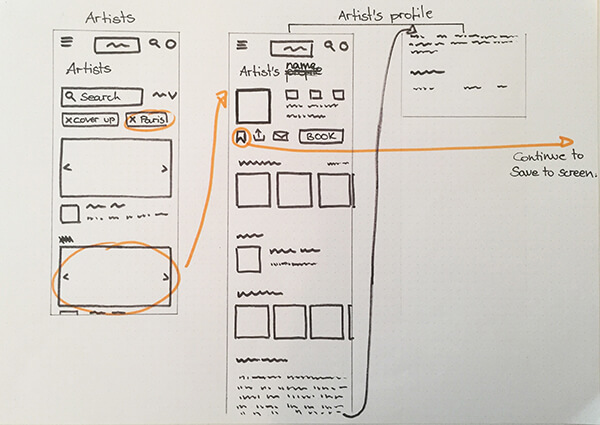 Artists
Artists
Search
x cover up
x Paris
Artist's profile
Artist's name
BOOK
Continue to
Save to screen.